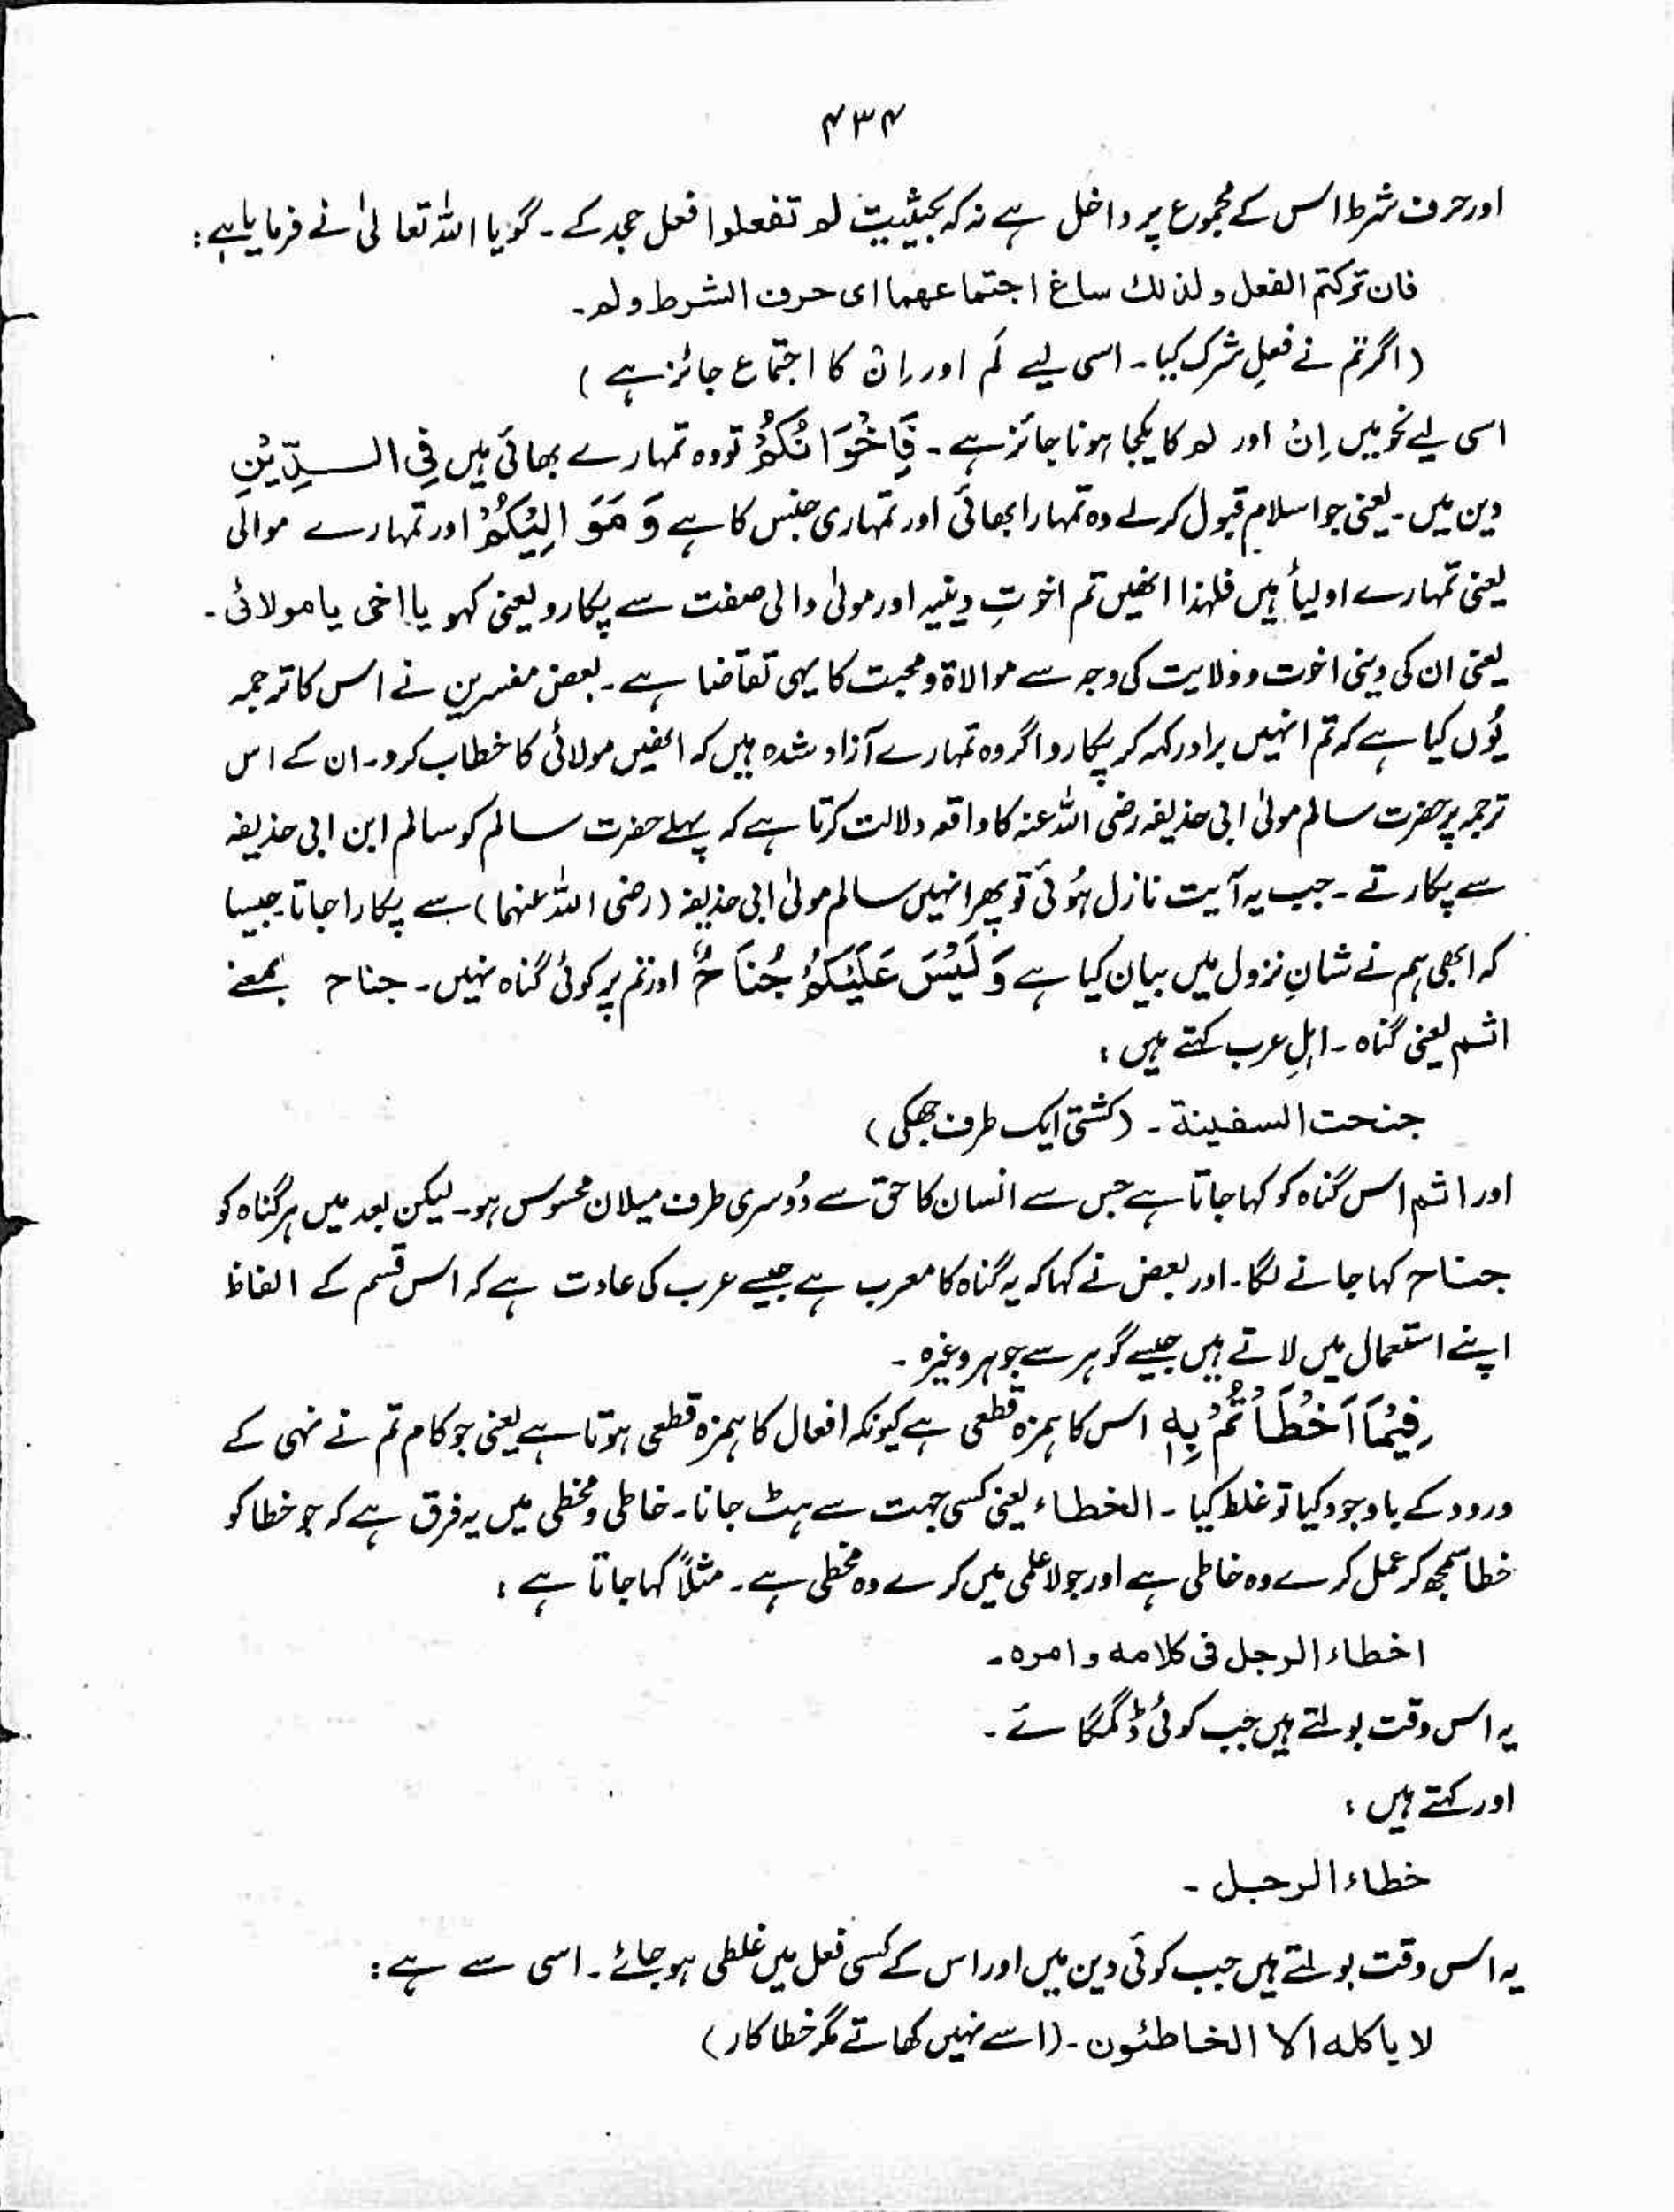 ۴۳۴
اور حرف شرط اس کے مجموع پر داخل ہے نہ کہ بحیثیت لم تفعلوا فعل جحد کے ۔ گویا اللہ تعالیٰ نے فرمایا ہے :
فان ترکتم الفعل و لذلك ساغ اجتماعهما ای حرف الشرط ولم ۔
( اگر تم نے فعلِ شرک کیا ۔ اسی لیے لَم اور اِن کا اجتماع جائز ہے )
اسی لیے نحو میں اِنْ اور لم کا یکجا ہونا جائز ہے ۔ فَاِخْوَانُكُمْ تو وہ تمہارے بھائی ہیں فِی الدِّیْنِ
دین میں ۔ یعنی جو اسلام قبول کرلے وہ تمہارا بھائی اور تمہاری جنس کا ہے وَ مَوَالِیْكُمْ اور تمہارے موالی
یعنی تمہارے اولیأ ہیں فلہذا انھیں تم اخوتِ دینیہ اور مولیٰ والی صفت سے پکارو یعنی کہو یا اخی یا مولائی ۔
یعنی ان کی دینی اخوت و ولایت کی وجہ سے موالاۃ و محبت کا یہی تقاضا ہے ۔ بعض مفسرین نے اس کا ترجمہ
یُوں کیا ہے کہ تم انہیں برادر کہہ کر پکارو اگر وہ تمہارے آزاد شدہ ہیں کہ انھیں مولائی کا خطاب کرو ۔ ان کے اس
ترجمہ پر حضرت سالم مولیٰ ابی حذیفہ رضی اللہ عنہ کا واقعہ دلالت کرتا ہے کہ پہلے حضرت سالم کو سالم ابن ابی حذیفہ
سے پکارتے ۔ جب یہ آیت نازل ہُوئی تو پھر انہیں سالم مولیٰ ابی حذیفہ ( رضی اللہ عنہما ) سے پکارا جاتا جیسا
کہ ابھی ہم نے شانِ نزول میں بیان کیا ہے وَ لَیْسَ عَلَیْكُمْ جُنَاحٌ اور تم پر کوئی گناہ نہیں ۔ جناح بمعنے
اثم یعنی گناہ ۔ اہلِ عرب کہتے ہیں :
جنحت السفینة ۔ ( کشتی ایک طرف جھکی )
اور اثم اس گناہ کو کہا جاتا ہے جس سے انسان کا حق سے دُوسری طرف میلان محسوس ہو ۔ لیکن بعد میں ہر گناہ کو
جناح کہا جانے لگا ۔ اور بعض نے کہا کہ یہ گناہ کا معرب ہے جیسے عرب کی عادت ہے کہ اس قسم کے الفاظ
اپنے استعمال میں لاتے ہیں جیسے گوہر سے جوہر وغیرہ ۔
فِیْمَآ اَخْطَاْتُمْ بِهٖ اس کا ہمزہ قطعی ہے کیونکہ افعال کا ہمزہ قطعی ہوتا ہے یعنی جو کام تم نے نہی کے
ورود کے باوجود کیا تو غلط کیا ۔ الخطاء یعنی کسی جہت سے ہٹ جانا ۔ خاطی و مخطی میں یہ فرق ہے کہ جو خطا کو
خطا سمجھ کر عمل کرے وہ خاطی ہے اور جو لاعلمی میں کرے وہ مخطی ہے ۔ مثلاً کہا جاتا ہے :
اخطاء الرجل فی کلامه و امره ۔
یہ اس وقت بولتے ہیں جب کوئی ڈگمگائے ۔
اور کہتے ہیں :
خطاء الرجل ۔
یہ اس وقت بولتے ہیں جب کوئی دین میں اور اس کے کسی فعل میں غلطی ہو جائے ۔ اسی سے ہے :
لا یاکله الا الخاطئون ۔ ( اسے نہیں کھاتے مگر خطا کار )